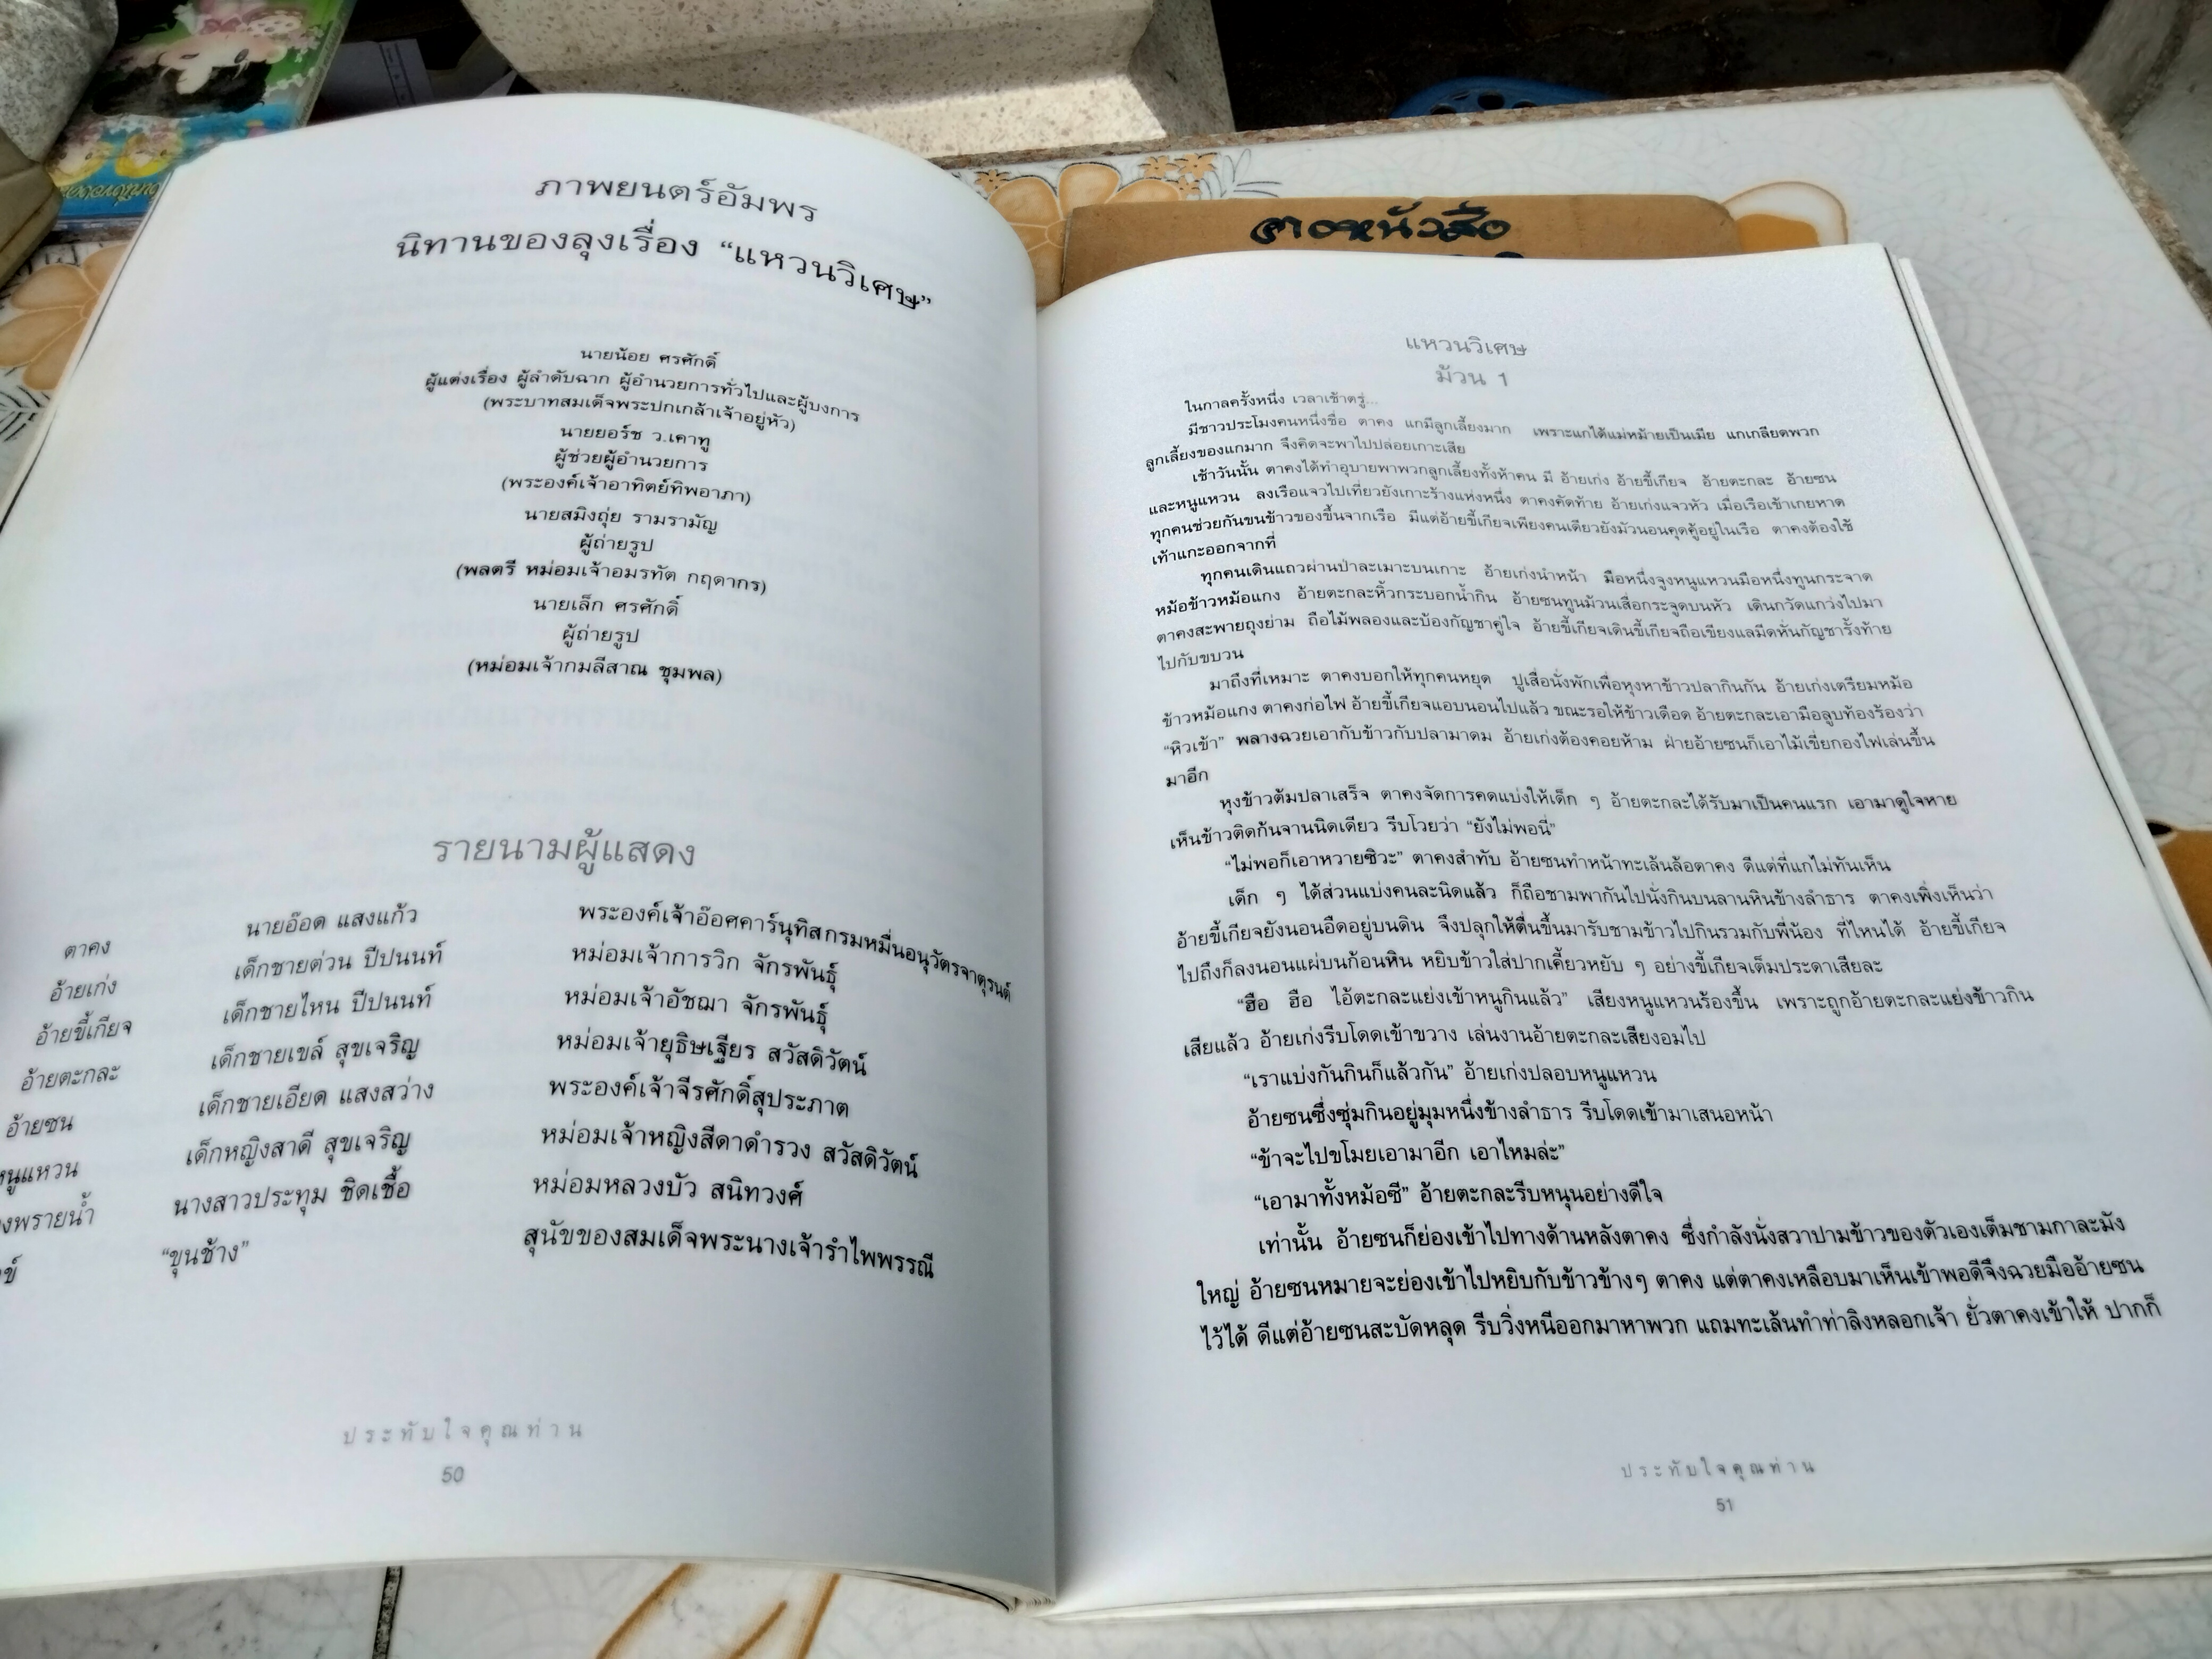 ภาพยนตร์อัมพร
นิทานของลุงเรื่อง “แหวนวิเศษ”
นายน้อย ศรศักดิ์
ผู้แต่งเรื่อง ผู้ลำดับฉาก ผู้อำนวยการทั่วไปและผู้บงการ
(พระบาทสมเด็จพระปกเกล้าเจ้าอยู่หัว)
นายยอร์ช ว.เคาทู
ผู้ช่วยผู้อำนวยการ
(พระองค์เจ้าอาทิตย์ทิพอาภา)
นายสมิงถุ่ย รามรามัญ
ผู้ถ่ายรูป
(พลตรี หม่อมเจ้าอมรทัต กฤดากร)
นายเล็ก ศรศักดิ์
ผู้ถ่ายรูป
(หม่อมเจ้ากมลีสาณ ชุมพล)
รายนามผู้แสดง
ตาคง นายอ๊อด แสงแก้ว พระองค์เจ้าอ๊อศคาร์นุทิสกรมหมื่นอนุวัตรจาตุรนต์
อ้ายเก่ง เด็กชายต่วน ปีปนนท์ หม่อมเจ้าการวิก จักรพันธุ์
อ้ายขี้เกียจ เด็กชายไหน ปีปนนท์ หม่อมเจ้าอัชฌา จักรพันธุ์
อ้ายตะกละ เด็กชายเขล์ สุขเจริญ หม่อมเจ้ายุธิษเฐียร สวัสดิวัตน์
อ้ายซน เด็กชายเอียด แสงสว่าง พระองค์เจ้าจีรศักดิ์สุประภาต
หนูแหวน เด็กหญิงสาดี สุขเจริญ หม่อมเจ้าหญิงสีดาดำรวง สวัสดิวัตน์
งพรายน้ำ นางสาวประทุม ชิดเชื้อ หม่อมหลวงบัว สนิทวงศ์
ข์ “ขุนช้าง” สุนัขของสมเด็จพระนางเจ้ารำไพพรรณี
ประทับใจคุณท่าน
50
ตางหนัวสือ
แหวนวิเศษ
ม้วน 1
ในกาลครั้งหนึ่ง เวลาเช้าตรู่...
มีชาวประโมงคนหนึ่งชื่อ ตาคง แกมีลูกเลี้ยงมาก เพราะแกได้แม่หม้ายเป็นเมีย แกเกลียดพวก
ลูกเลี้ยงของแกมาก จึงคิดจะพาไปปล่อยเกาะเสีย
เช้าวันนั้น ตาคงได้ทำอุบายพาพวกลูกเลี้ยงทั้งห้าคน มี อ้ายเก่ง อ้ายขี้เกียจ อ้ายตะกละ อ้ายซน
และหนูแหวน ลงเรือแจวไปเที่ยวยังเกาะร้างแห่งหนึ่ง ตาคงคัดท้าย อ้ายเก่งแจวหัว เมื่อเรือเข้าเกยหาด
ทุกคนช่วยกันขนข้าวของขึ้นจากเรือ มีแต่อ้ายขี้เกียจเพียงคนเดียวยังมัวนอนคุดคู้อยู่ในเรือ ตาคงต้องใช้
เท้าแกะออกจากที่
ทุกคนเดินแถวผ่านป่าละเมาะบนเกาะ อ้ายเก่งนำหน้า มือหนึ่งจูงหนูแหวนมือหนึ่งทูนกระจาด
หม้อข้าวหม้อแกง อ้ายตะกละหิ้วกระบอกน้ำกิน อ้ายซนทูนม้วนเสื่อกระจูดบนหัว เดินกวัดแกว่งไปมา
ตาคงสะพายถุงย่าม ถือไม้พลองและบ้องกัญชาคู่ใจ อ้ายขี้เกียจเดินขี้เกียจถือเขียงแลมีดหั่นกัญชารั้งท้าย
ไปกับขบวน
มาถึงที่เหมาะ ตาคงบอกให้ทุกคนหยุด ปูเสื่อนั่งพักเพื่อหุงหาข้าวปลากินกัน อ้ายเก่งเตรียมหม้อ
ข้าวหม้อแกง ตาคงก่อไฟ อ้ายขี้เกียจแอบนอนไปแล้ว ขณะรอให้ข้าวเดือด อ้ายตะกละเอามือลูบท้องร้องว่า
“หิวเข้า” พลางฉวยเอากับข้าวกับปลามาดม อ้ายเก่งต้องคอยห้าม ฝ่ายอ้ายซนก็เอาไม้เขี่ยกองไฟเล่นขึ้น
มาอีก
หุงข้าวต้มปลาเสร็จ ตาคงจัดการคดแบ่งให้เด็ก ๆ อ้ายตะกละได้รับมาเป็นคนแรก เอามาดูใจหาย
เห็นข้าวติดก้นจานนิดเดียว รีบโวยว่า “ยังไม่พอนี่”
“ไม่พอก็เอาหวายซิวะ” ตาคงสำทับ อ้ายซนทำหน้าทะเล้นล้อตาคง ดีแต่ที่แกไม่ทันเห็น
เด็ก ๆ ได้ส่วนแบ่งคนละนิดแล้ว ก็ถือชามพากันไปนั่งกินบนลานหินข้างลำธาร ตาคงเพิ่งเห็นว่า
อ้ายขี้เกียจยังนอนอืดอยู่บนดิน จึงปลุกให้ตื่นขึ้นมารับชามข้าวไปกินรวมกับพี่น้อง ที่ไหนได้ อ้ายขี้เกียจ
ไปถึงก็ลงนอนแผ่บนก้อนหิน หยิบข้าวใส่ปากเคี้ยวหยับ ๆ อย่างขี้เกียจเต็มประดาเสียละ
“ฮือ ฮือ ไอ้ตะกละแย่งเข้าหนูกินแล้ว” เสียงหนูแหวนร้องขึ้น เพราะถูกอ้ายตะกละแย่งข้าวกิน
เสียแล้ว อ้ายเก่งรีบโดดเข้าขวาง เล่นงานอ้ายตะกละเสียงอมไป
“เราแบ่งกันกินก็แล้วกัน” อ้ายเก่งปลอบหนูแหวน
อ้ายซนซึ่งซุ่มกินอยู่มุมหนึ่งข้างลำธาร รีบโดดเข้ามาเสนอหน้า
“ข้าจะไปขโมยเอามาอีก เอาไหมล่ะ”
“เอามาทั้งหม้อซี” อ้ายตะกละรีบหนุนอย่างดีใจ
เท่านั้น อ้ายซนก็ย่องเข้าไปทางด้านหลังตาคง ซึ่งกำลังนั่งสวาปามข้าวของตัวเองเต็มชามกาละมัง
ใหญ่ อ้ายซนหมายจะย่องเข้าไปหยิบกับข้าวข้างๆ ตาคง แต่ตาคงเหลือบมาเห็นเข้าพอดีจึงฉวยมืออ้ายซน
ไว้ได้ ดีแต่อ้ายซนสะบัดหลุด รีบวิ่งหนีออกมาหาพวก แถมทะเล้นทำท่าลิงหลอกเจ้า ยั่วตาคงเข้าให้ ปากก็
ประทับใจคุณท่าน
51